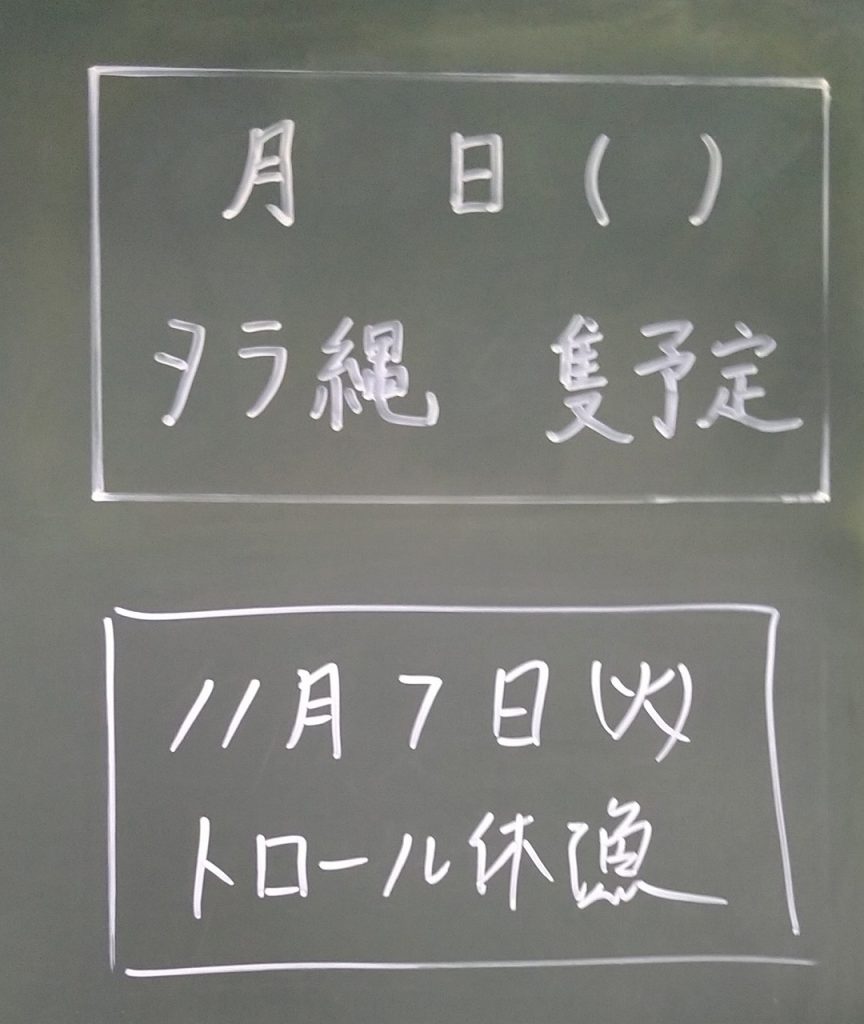 月 日( )
タラ縄 隻予定
11月7日(火)
トロール休漁